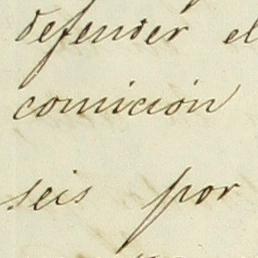 defender el
comicion
seis por